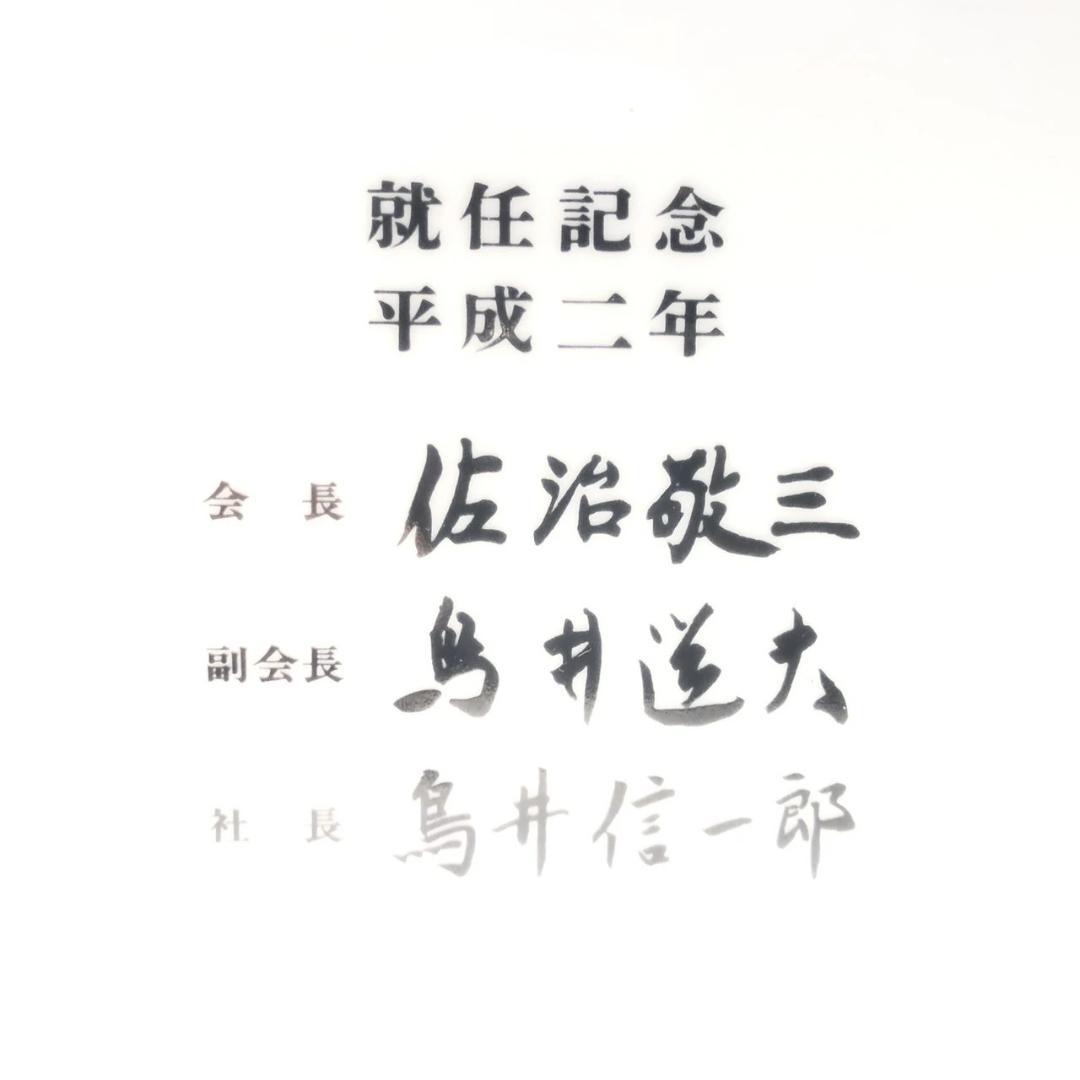 就任記念
平成二年
会長 佐治敬三
副会長 鳥井道夫
社長 鳥井信一郎